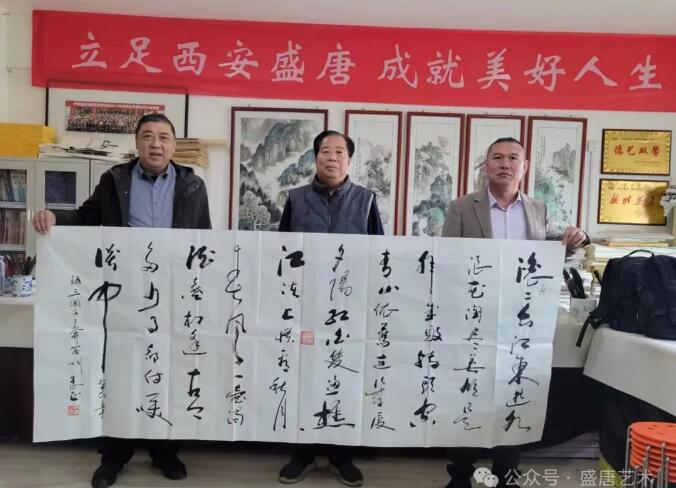 立足西安盛唐 成就美好人生
德艺双馨
滚滚长江东逝水
浪花淘尽英雄是
非成败转头空
青山依旧在几度
夕阳红白发渔樵
江渚上惯看秋月
春风一壶浊
酒喜相逢古今
多少事都付笑
谈中
公众号 · 盛唐艺术